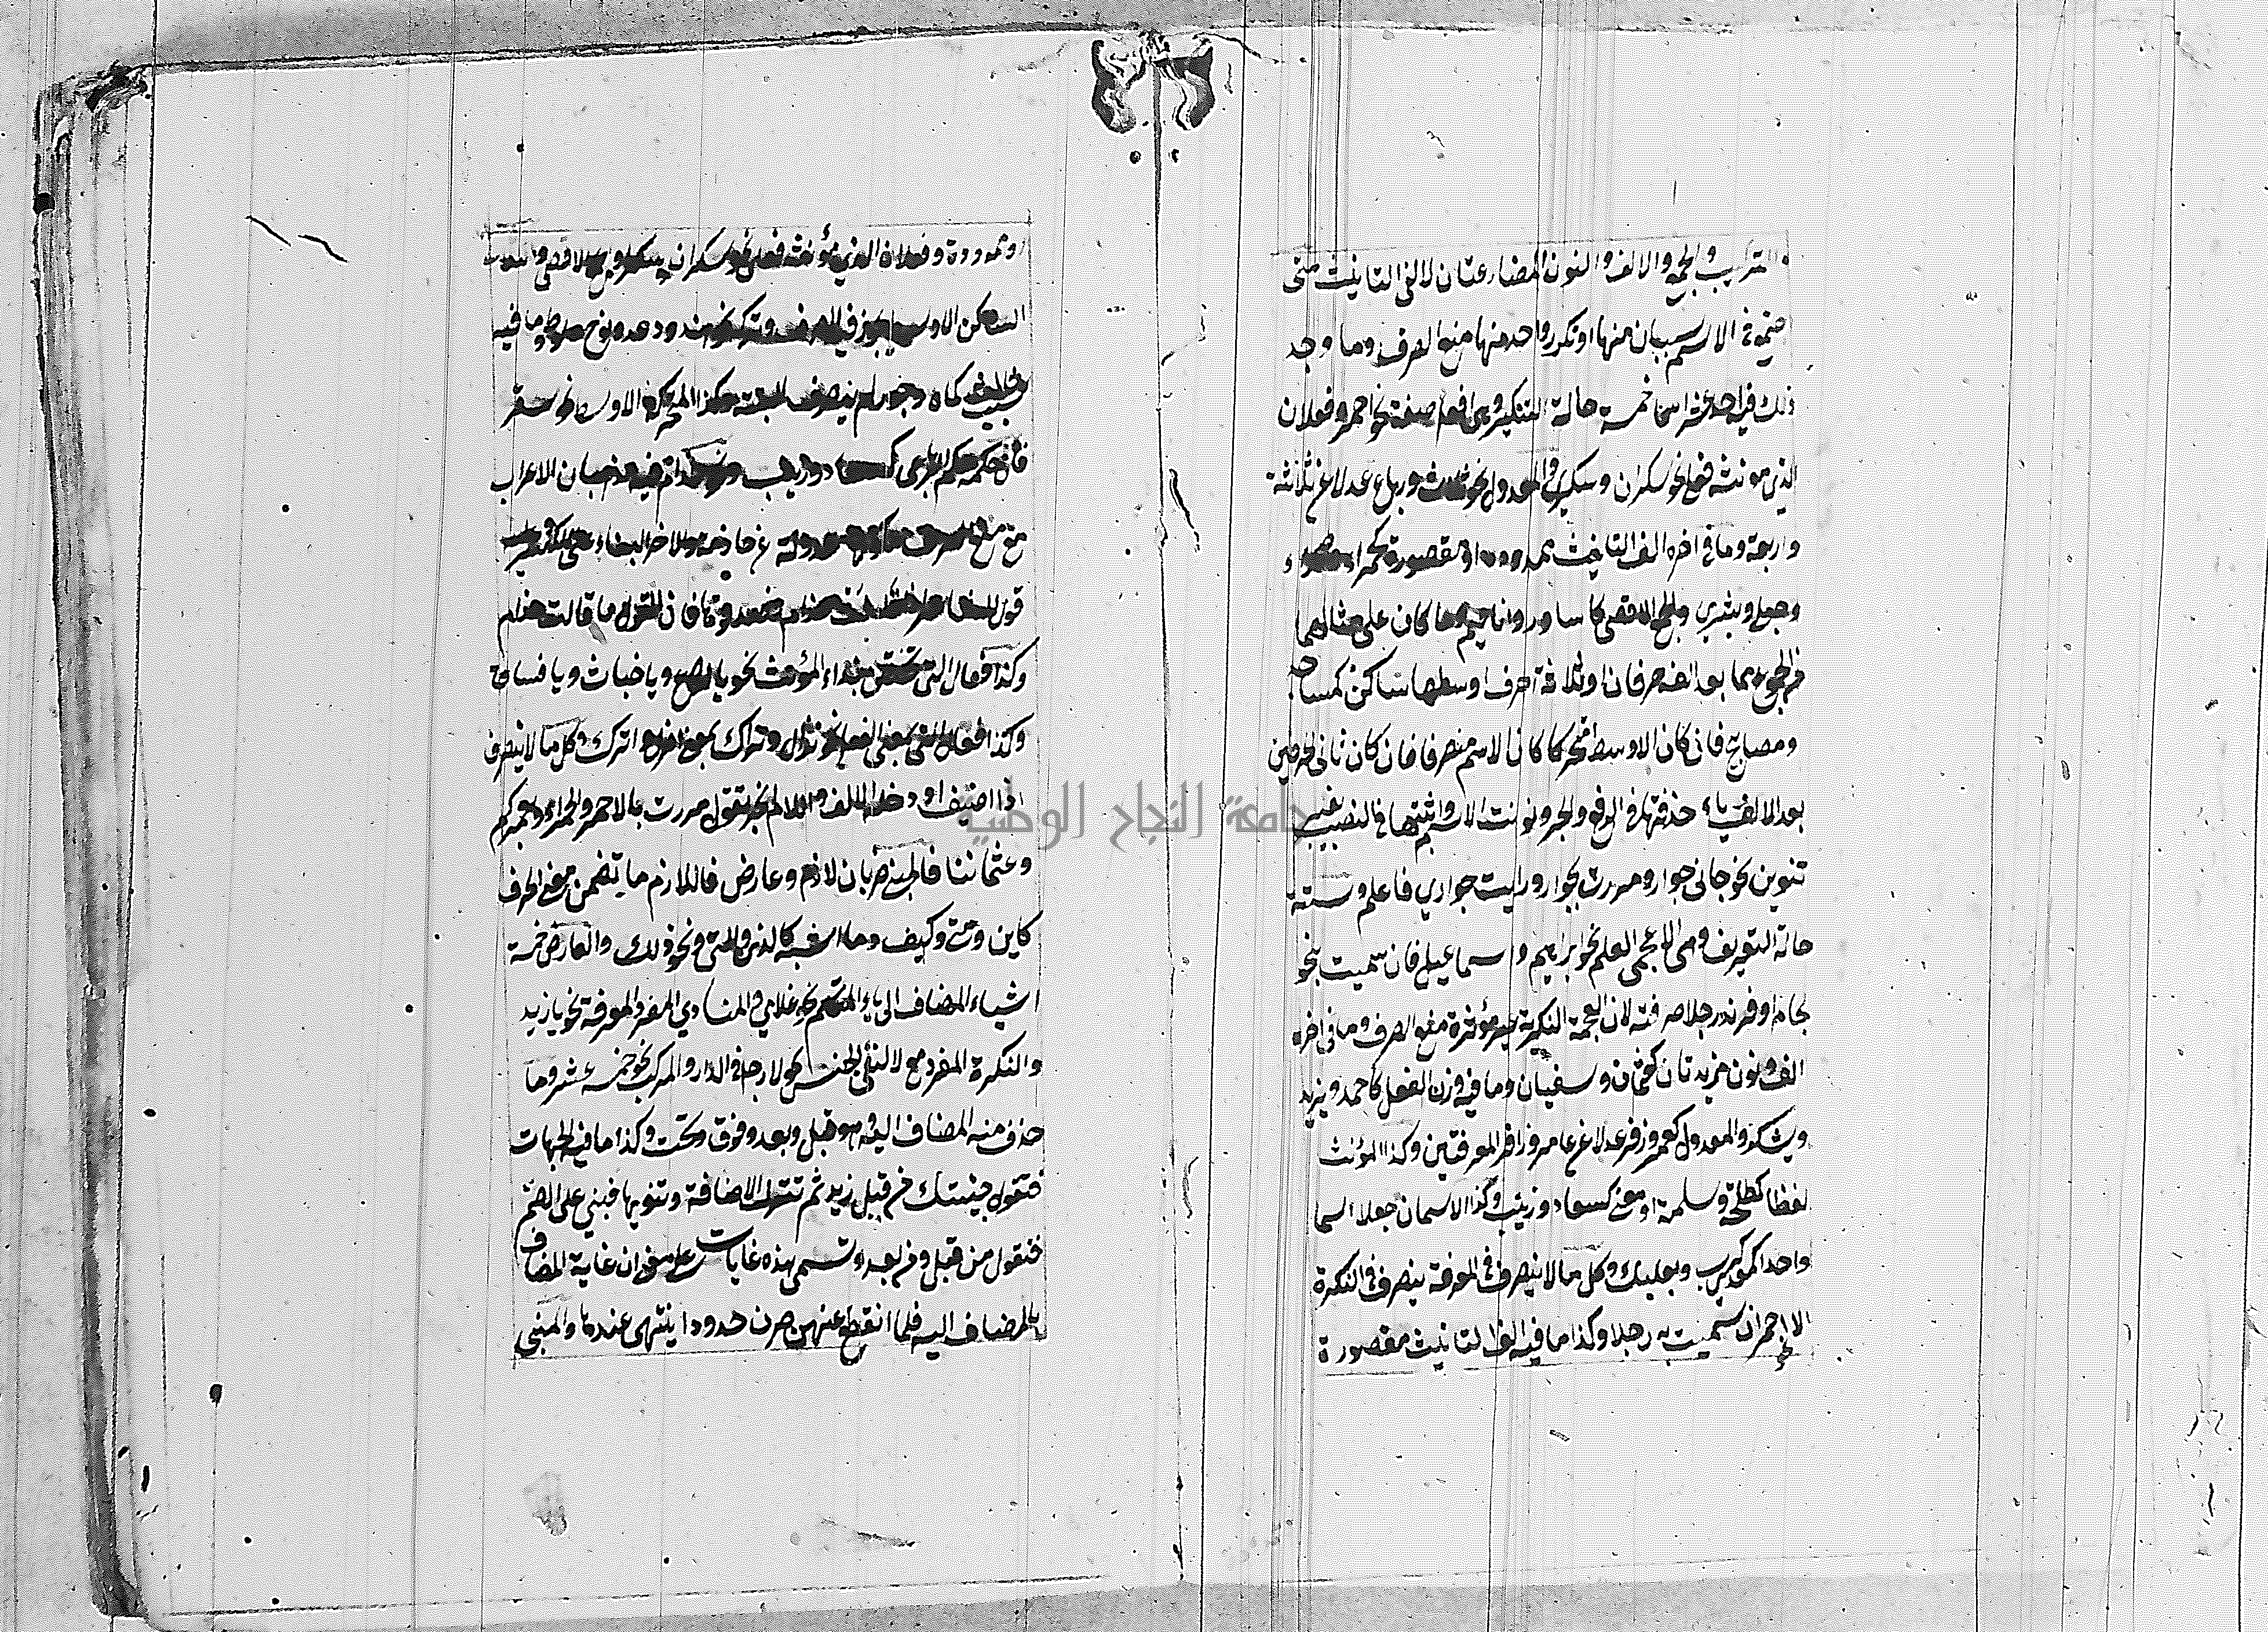 والتركيب والجمع والالف والنون المضارعتان لالفي التانيث متى
اجتمع في الاسم سببان منها او تكرر واحد منها منع الصرف وما وجد
ذلك فيه احد عشر اسما خمسة حالة التنكير وهي افعل صفة نحو احمر وفعلان
الذي مونثه فعلى نحو سكران وسكرى والمعدول نحو ثلاث ورباع عدلا عن ثلاثة
واربعة وما في اخره الف التانيث ممدودة او مقصورة كحمراء
وحبلى وبشرى والجمع الاقصى كاساور واناعيم وما كان على مثالهما
من الجموع مما بعد الفه حرفان او ثلاثة احرف اوسطها ساكن كمساجد
ومصابيح فان كان الاوسط متحركا كان الاسم منصرفا فان كان ثاني الحرفين
بعد الالف ياء حذفتها في الرفع والجر ونونت الاسم واثبتها في النصب بغير
تنوين نحو جاني جوار ومررت بجوار ورايت جواري فاعلم وستة
حالة التعريف وهي الاعجمي العلم نحو ابراهيم واسماعيل فان سميت بنحو
لجام او فرند رجلا صرفته لان العجمة النكرية غير مؤثرة منع الصرف وما في اخره
الف ونون مزيدتان كعثمان وسفيان وما فيه وزن الفعل كاحمد ويزيد
ويشكر والمعدول كعمر وزفر عدلا عن عامر وزافر المعرفتين وكذا المؤنث
لفظا كطلحة وسلمة او معنى كسعاد وزينب وكذا الاسمان جعلا اسما
واحدا كمعدي كرب وبعلبك وكل ما لا ينصرف في المعرفة ينصرف في النكرة
الا نحو احمر ان سميت به رجلا وكذا ما فيه الف التانيث مقصورة
او ممدودة وفعلان الذي مؤنثه فعلى نحو سكران والجمع الاقصى
الساكن الاوسط يجوز فيه الصرف وتركه نحو هند ودعد ونوح ولوط وما فيه
سبب ثالث كماه وجور لم ينصرف البتة وكذا المتحركة الاوسط نحو سقر
فان حكمه حكم الرباعي كسعاد وزينب ونحو حذام فيه مذهبان الاعراب
مع منع الصرف معدولة عن حاذمة والاخر البناء على الكسر
قول الشاعر اذا قالت حذام فصدقوها فان القول ما قالت حذام
وكذا فعال التي تختص بنداء المؤنث نحو يا لكاع ويا خباث ويا فساق
وكذا فعال التي بمعنى الفعل نحو نزال وتراك بمعنى انزل واترك وكل ما لا ينصرف
اذا اضيف او دخله الالف واللام انجر تقول مررت بالاحمر والحمراء وبعمركم
وعثماننا فالمبني ضربان لازم وعارض فاللازم ما يتضمن معنى الحرف
كاين ومتى وكيف وما اشبهه كالذي والتي ونحو ذلك والعارض خمسة
اشياء المضاف الى ياء المتكلم نحو غلامي والمنادي المفرد المعرفة نحو يا زيد
والنكرة المفرد مع لا لنفي الجنس نحو لا رجل في الدار والمركب نحو خمسة عشر وما
حذف منه المضاف اليه وهو قبل وبعد وفوق وتحت وكذا ما في الجهات
فتقول جئتك من قبل زيد ثم تترك الاضافة وتنويها فيبني على الضم
فتقول من قبل ومن بعد وتسمى هذه غايات على معنى ان غاية المضاف
بالمضاف اليه فلما انقطع عنهن صرن حدودا ينتهى عندها والمبني
جامعة النجاح الوطنية